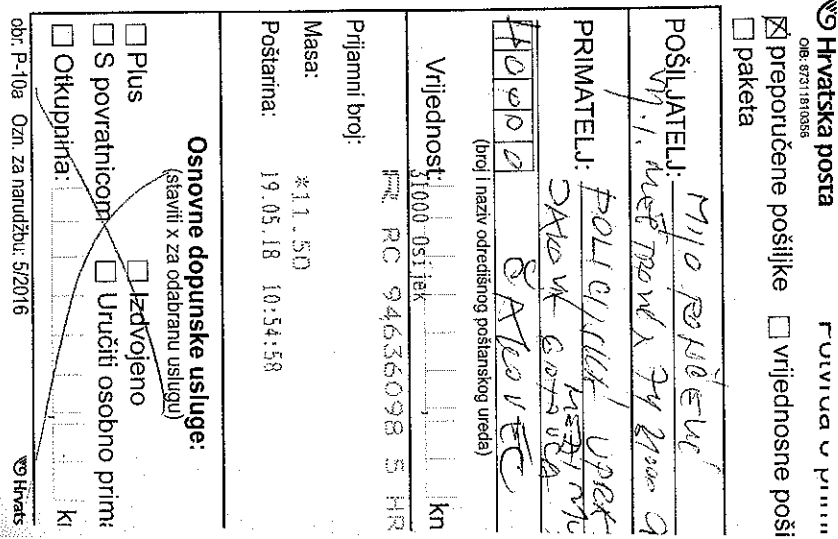 Hrvatska posta
OIB: 87311810356
☒ preporučene pošiljke ☐ vrijednosne poši
☐ paketa
POŠILJATELJ: MIJO
PRIMATELJ: POLICIJSKA UPRA
40000 ČAKOVEC
(broj i naziv odredišnog poštanskog ureda)
Vrijednost: kn
31000 Osijek
Prijamni broj: RC 94636098 5 HR
Masa:
*11.50
Poštarina: 19.05.18 10:54:58
Osnovne dopunske usluge:
(staviti x za odabranu uslugu)
☐ Plus ☐ Izdvojeno
☐ S povratnicom ☐ Uručiti osobno prim
☐ Otkupnina:
obr. P-10a Ozn. za narudžbu: 5/2016 Hrvats